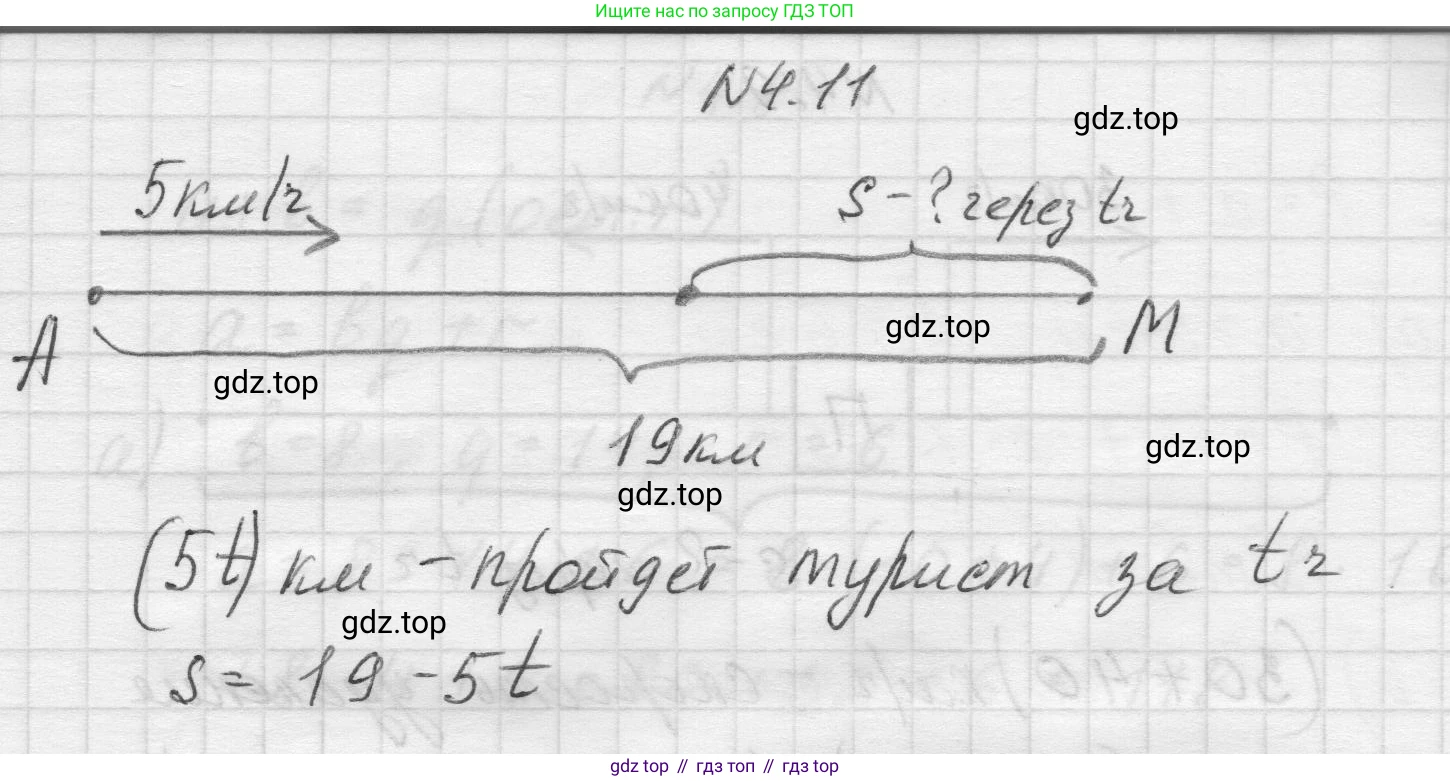 Ищите нас по запросу ГДЗ ТОП
N4.11
gdz.top
5км/ч
S - ? через tч
A
M
gdz.top
gdz.top
19км
gdz.top
gdz.top
(5t) км - пройдет турист за t ч
gdz.top
s = 19 - 5t
gdz top // гдз топ // гдз top